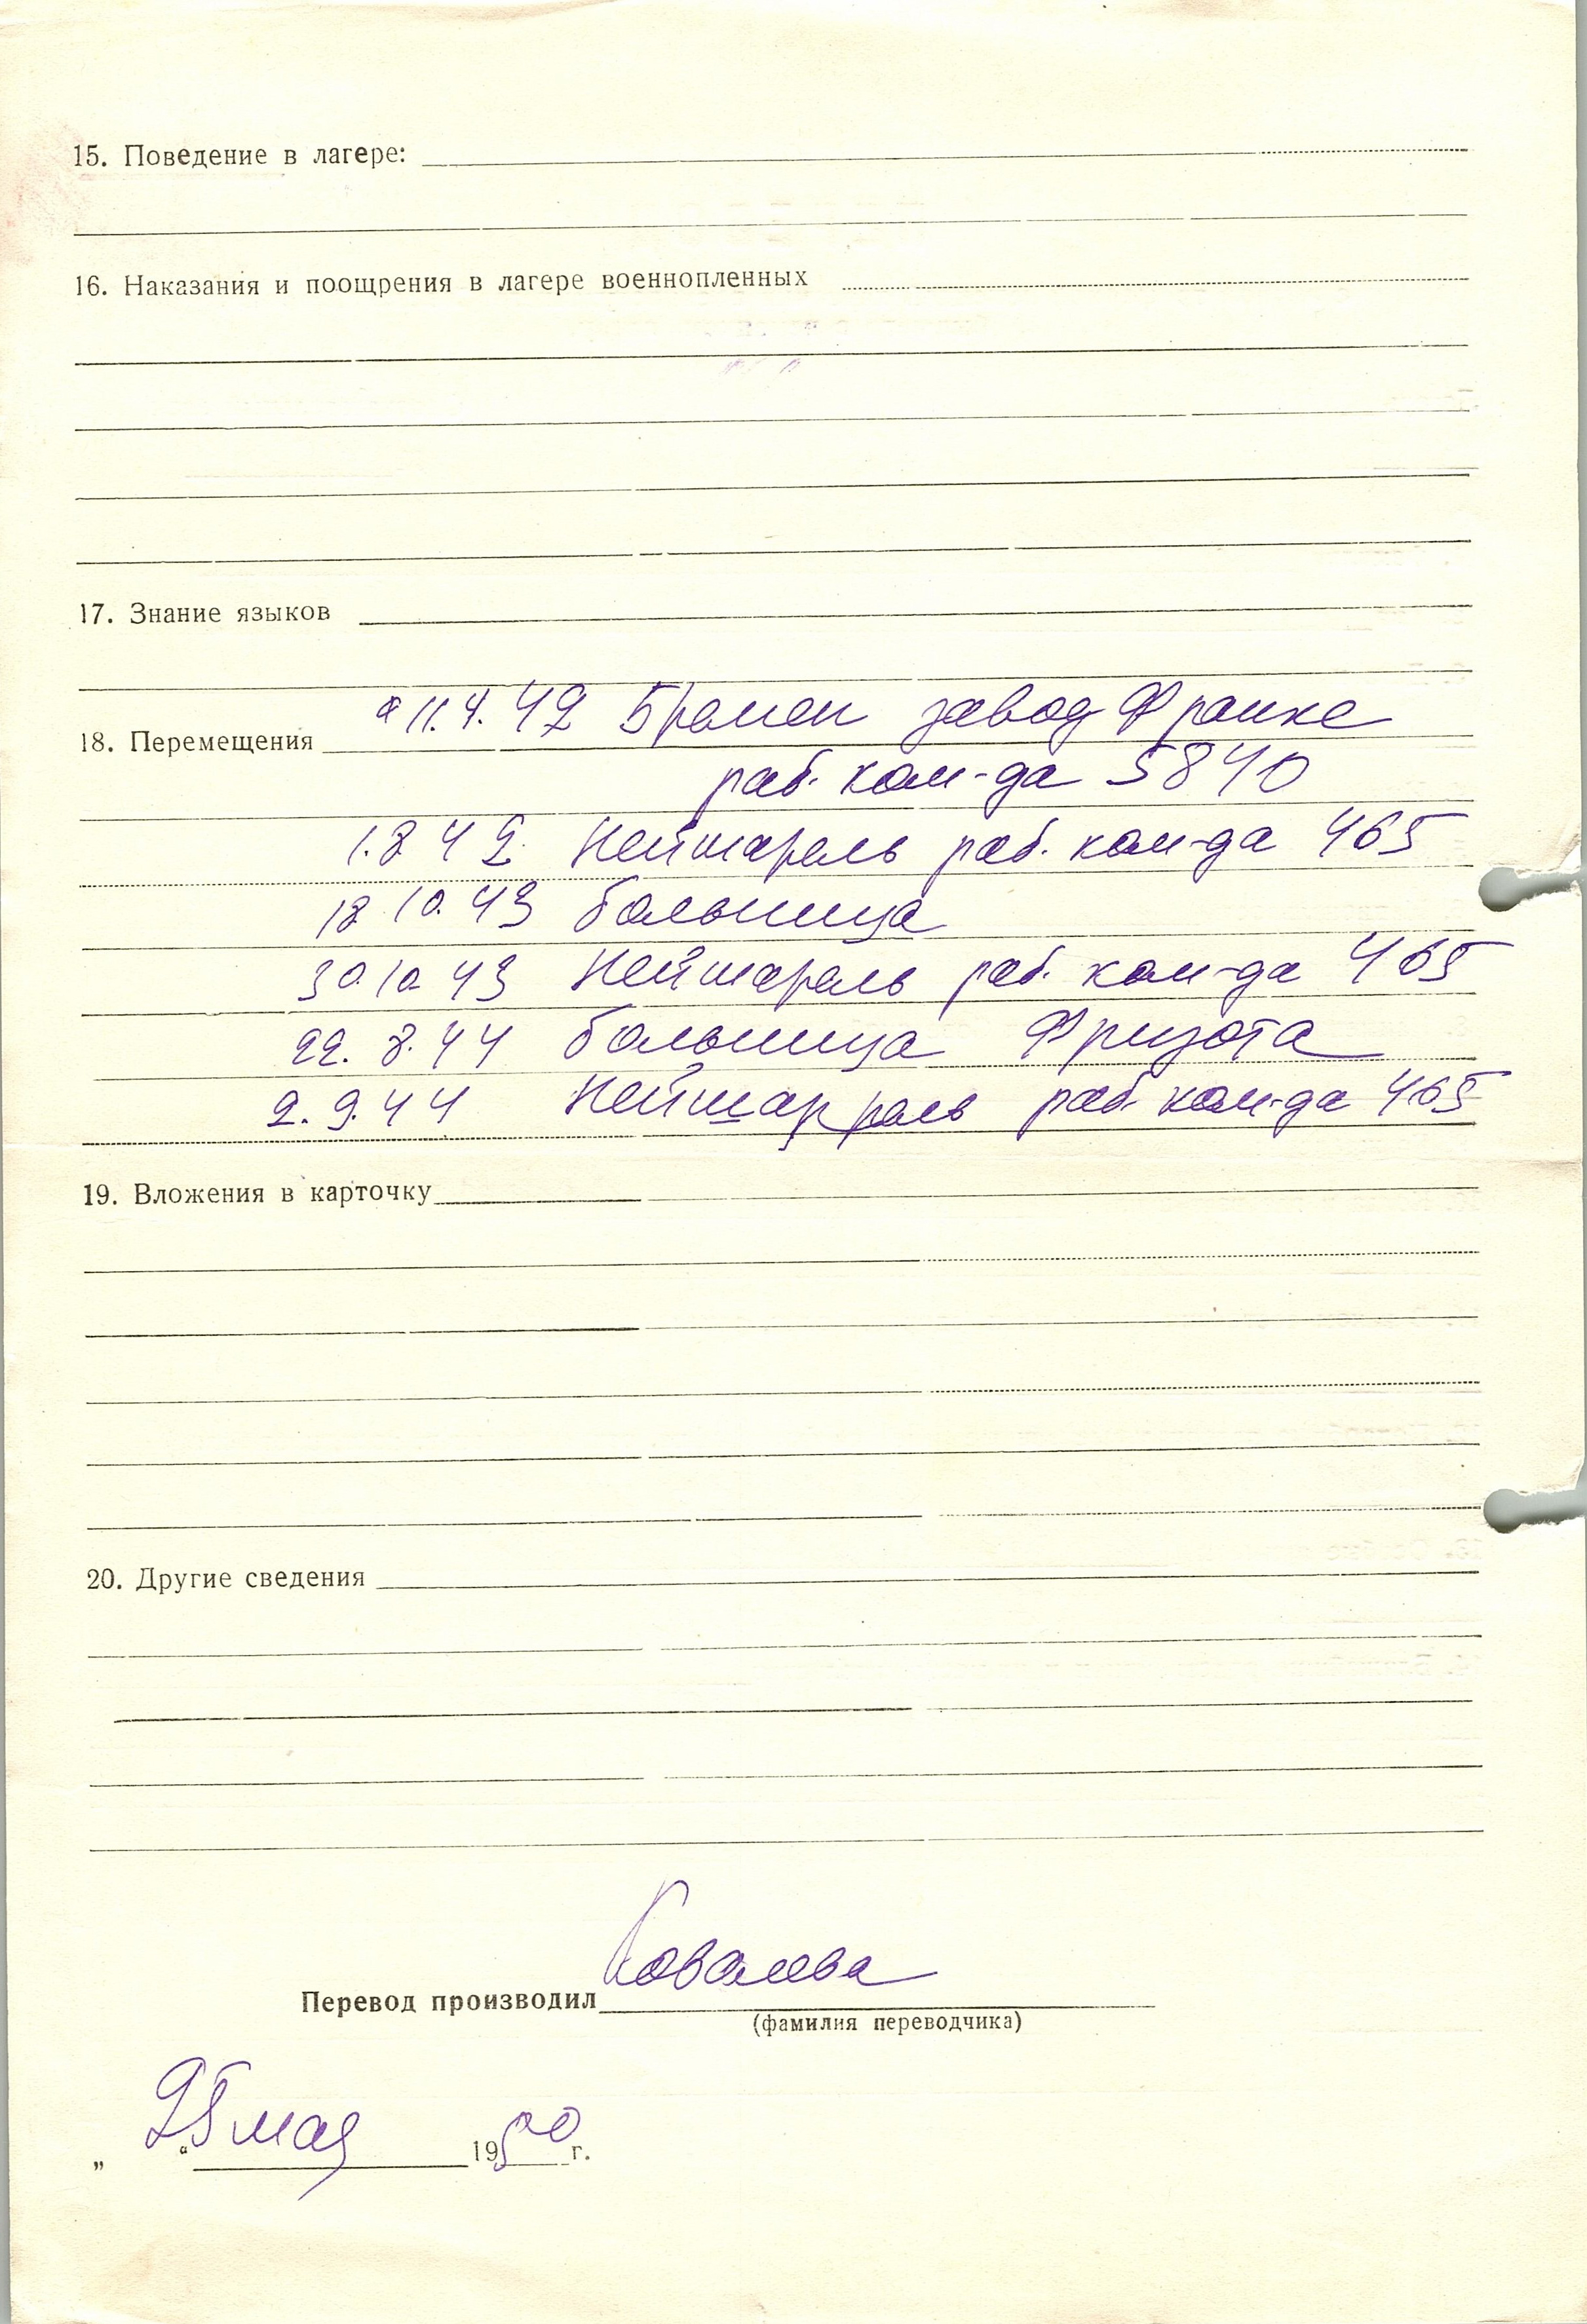 15. Поведение в лагере:
16. Наказания и поощрения в лагере военнопленных
17. Знание языков
11.4.42 Бремен завод Франке
18. Перемещения
раб. ком-да 5840
1.8 42 Неймарель раб. ком-да 465
18 10. 43 больница
30.10 43 Неймарель раб. ком-да 465
22. 8. 44 больница Фризота
2. 9. 44 раб. ком-да 465
19. Вложения в карточку
20. Другие сведения
Ковалева
Перевод производил
(фамилия переводчика)
„ 25 “ мая 1950 г.